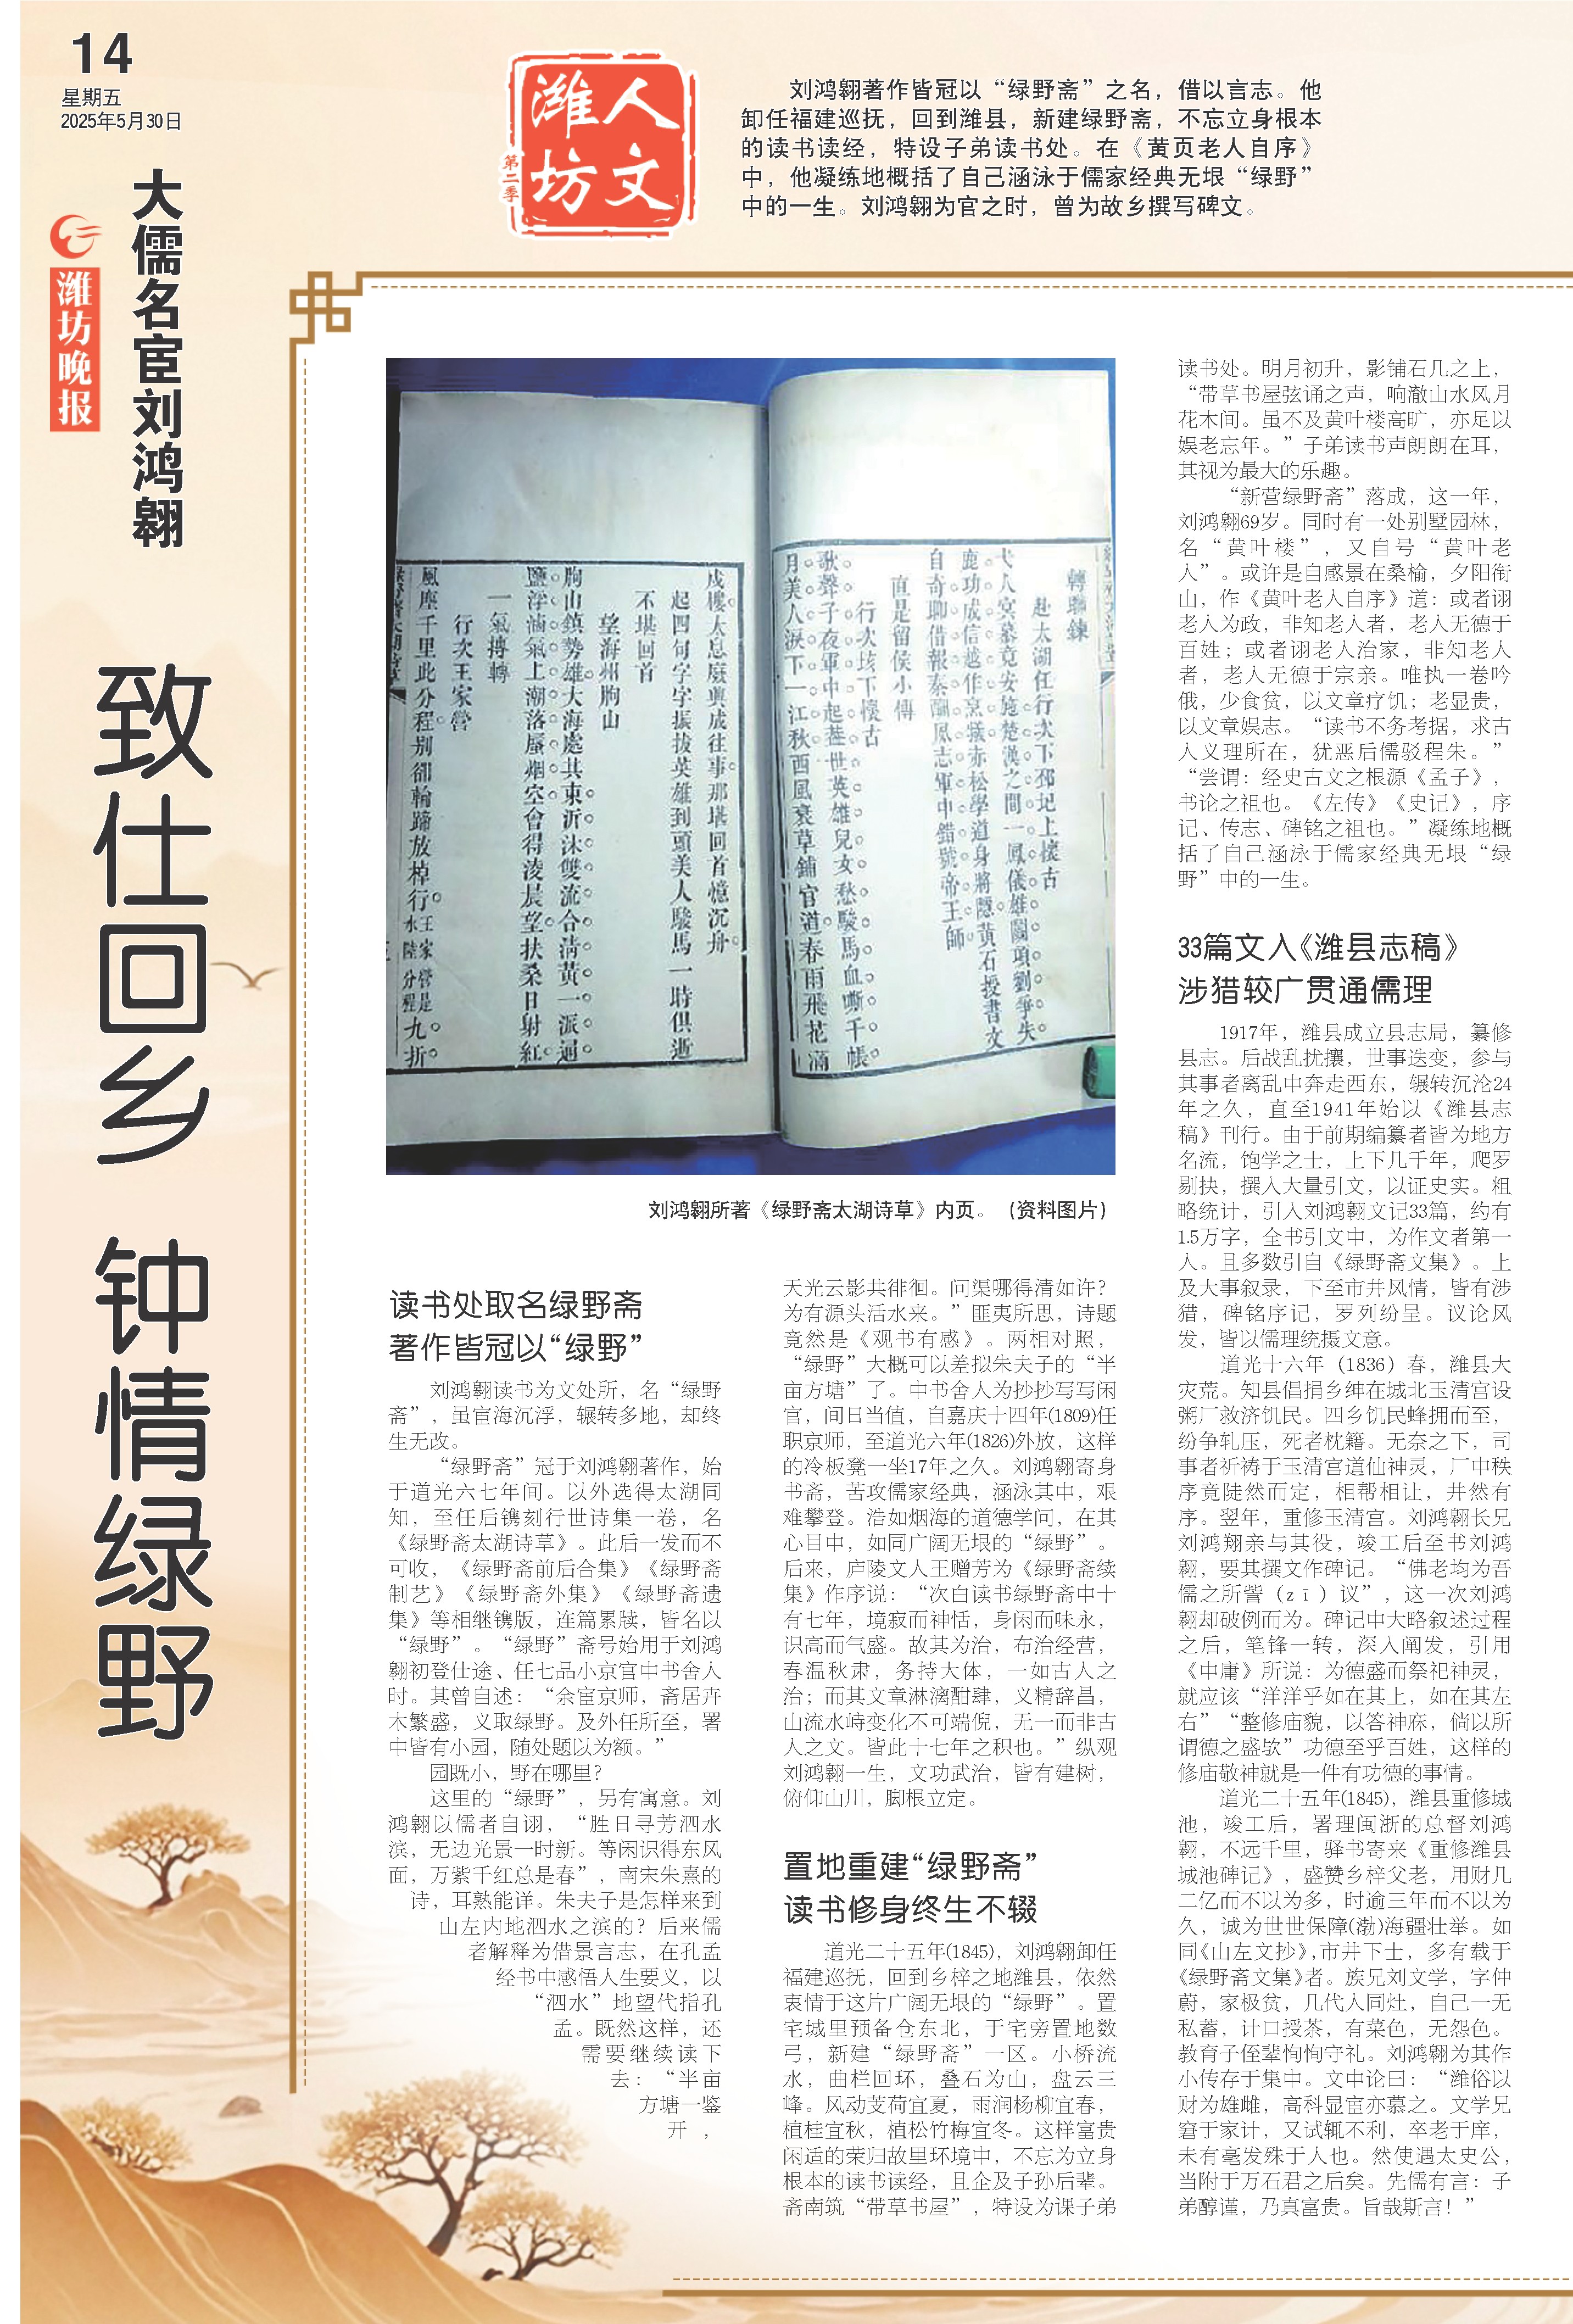 14
星期五
2025年5月30日
潍坊晚报
大儒名宦刘鸿翱
致仕回乡 钟情绿野
人文
潍坊
第二季
刘鸿翱著作皆冠以“绿野斋”之名，借以言志。他
卸任福建巡抚，回到潍县，新建绿野斋，不忘立身根本
的读书读经，特设子弟读书处。在《黄页老人自序》
中，他凝练地概括了自己涵泳于儒家经典无垠“绿野”
中的一生。刘鸿翱为官之时，曾为故乡撰写碑文。
轉聯鍊
赴太湖任行次下邳圯上懷古
自奇聊借報秦酬夙志軍中錯號帝王師
直是留侯小傳
行次垓下懷古
歌聲子夜軍中起蓋世英雄兒女愁駿馬血嘶千帳
月美人淚下一江秋西風衰草鋪官道春雨飛花滿
戍樓太息廢興成往事那堪回首憶沉舟
起四句字字振拔英雄到頭美人駿馬一時俱逝
不堪回首
望海州朐山
朐山鎮勢雄大海處其東沂沭雙流合清黃一派通
鹽浮滷氣上潮落蜃烟空會得淩晨望扶桑日射紅
一氣摶轉
行次王家營
風塵千里此分程别卻輪蹄放棹行王家營是水陸分程九折
刘鸿翱所著《绿野斋太湖诗草》内页。（资料图片）
读书处取名绿野斋
著作皆冠以“绿野”
刘鸿翱读书为文处所，名“绿野
斋”，虽宦海沉浮，辗转多地，却终
生无改。
“绿野斋”冠于刘鸿翱著作，始
于道光六七年间。以外选得太湖同
知，至任后镌刻行世诗集一卷，名
《绿野斋太湖诗草》。此后一发而不
可收，《绿野斋前后合集》《绿野斋
制艺》《绿野斋外集》《绿野斋遗
集》等相继镌版，连篇累牍，皆名以
“绿野”。“绿野”斋号始用于刘鸿
翱初登仕途、任七品小京官中书舍人
时。其曾自述：“余宦京师，斋居卉
木繁盛，义取绿野。及外任所至，署
中皆有小园，随处题以为额。”
园既小，野在哪里？
这里的“绿野”，另有寓意。刘
鸿翱以儒者自诩，“胜日寻芳泗水
滨，无边光景一时新。等闲识得东风
面，万紫千红总是春”，南宋朱熹的
诗，耳熟能详。朱夫子是怎样来到
山左内地泗水之滨的？后来儒
者解释为借景言志，在孔孟
经书中感悟人生要义，以
“泗水”地望代指孔
孟。既然这样，还
需要继续读下
去：“半亩
方塘一鉴
开，
天光云影共徘徊。问渠哪得清如许？
为有源头活水来。”匪夷所思，诗题
竟然是《观书有感》。两相对照，
“绿野”大概可以差拟朱夫子的“半
亩方塘”了。中书舍人为抄抄写写闲
官，间日当值，自嘉庆十四年(1809)任
职京师，至道光六年(1826)外放，这样
的冷板凳一坐17年之久。刘鸿翱寄身
书斋，苦攻儒家经典，涵泳其中，艰
难攀登。浩如烟海的道德学问，在其
心目中，如同广阔无垠的“绿野”。
后来，庐陵文人王赠芳为《绿野斋续
集》作序说：“次白读书绿野斋中十
有七年，境寂而神恬，身闲而味永，
识高而气盛。故其为治，布治经营，
春温秋肃，务持大体，一如古人之
治；而其文章淋漓酣肆，义精辞昌，
山流水峙变化不可端倪，无一而非古
人之文。皆此十七年之积也。”纵观
刘鸿翱一生，文功武治，皆有建树，
俯仰山川，脚根立定。
置地重建“绿野斋”
读书修身终生不辍
道光二十五年(1845)，刘鸿翱卸任
福建巡抚，回到乡梓之地潍县，依然
衷情于这片广阔无垠的“绿野”。置
宅城里预备仓东北，于宅旁置地数
弓，新建“绿野斋”一区。小桥流
水，曲栏回环，叠石为山，盘云三
峰。风动芰荷宜夏，雨润杨柳宜春，
植桂宜秋，植松竹梅宜冬。这样富贵
闲适的荣归故里环境中，不忘为立身
根本的读书读经，且企及子孙后辈。
斋南筑“带草书屋”，特设为课子弟
读书处。明月初升，影铺石几之上，
“带草书屋弦诵之声，响澈山水风月
花木间。虽不及黄叶楼高旷，亦足以
娱老忘年。”子弟读书声朗朗在耳，
其视为最大的乐趣。
“新营绿野斋”落成，这一年，
刘鸿翱69岁。同时有一处别墅园林，
名“黄叶楼”，又自号“黄叶老
人”。或许是自感景在桑榆，夕阳衔
山，作《黄叶老人自序》道：或者诩
老人为政，非知老人者，老人无德于
百姓；或者诩老人治家，非知老人
者，老人无德于宗亲。唯执一卷吟
俄，少食贫，以文章疗饥；老显贵，
以文章娱志。“读书不务考据，求古
人义理所在，犹恶后儒驳程朱。”
“尝谓：经史古文之根源《孟子》，
书论之祖也。《左传》《史记》，序
记、传志、碑铭之祖也。”凝练地概
括了自己涵泳于儒家经典无垠“绿
野”中的一生。
33篇文入《潍县志稿》
涉猎较广贯通儒理
1917年，潍县成立县志局，纂修
县志。后战乱扰攘，世事迭变，参与
其事者离乱中奔走西东，辗转沉沦24
年之久，直至1941年始以《潍县志
稿》刊行。由于前期编纂者皆为地方
名流，饱学之士，上下几千年，爬罗
剔抉，撰入大量引文，以证史实。粗
略统计，引入刘鸿翱文记33篇，约有
1.5万字，全书引文中，为作文者第一
人。且多数引自《绿野斋文集》。上
及大事叙录，下至市井风情，皆有涉
猎，碑铭序记，罗列纷呈。议论风
发，皆以儒理统摄文意。
道光十六年（1836）春，潍县大
灾荒。知县倡捐乡绅在城北玉清宫设
粥厂救济饥民。四乡饥民蜂拥而至，
纷争轧压，死者枕籍。无奈之下，司
事者祈祷于玉清宫道仙神灵，厂中秩
序竟陡然而定，相帮相让，井然有
序。翌年，重修玉清宫。刘鸿翱长兄
刘鸿翔亲与其役，竣工后至书刘鸿
翱，要其撰文作碑记。“佛老均为吾
儒之所訾（zī）议”，这一次刘鸿
翱却破例而为。碑记中大略叙述过程
之后，笔锋一转，深入阐发，引用
《中庸》所说：为德盛而祭祀神灵，
就应该“洋洋乎如在其上，如在其左
右”“整修庙貌，以答神庥，倘以所
谓德之盛欤”功德至乎百姓，这样的
修庙敬神就是一件有功德的事情。
道光二十五年(1845)，潍县重修城
池，竣工后，署理闽浙的总督刘鸿
翱，不远千里，驿书寄来《重修潍县
城池碑记》，盛赞乡梓父老，用财几
二亿而不以为多，时逾三年而不以为
久，诚为世世保障(渤)海疆壮举。如
同《山左文抄》，市井下士，多有载于
《绿野斋文集》者。族兄刘文学，字仲
蔚，家极贫，几代人同灶，自己一无
私蓄，计口授茶，有菜色，无怨色。
教育子侄辈恂恂守礼。刘鸿翱为其作
小传存于集中。文中论曰：“潍俗以
财为雄雌，高科显宦亦慕之。文学兄
窘于家计，又试辄不利，卒老于庠，
未有毫发殊于人也。然使遇太史公，
当附于万石君之后矣。先儒有言：子
弟醇谨，乃真富贵。旨哉斯言！”